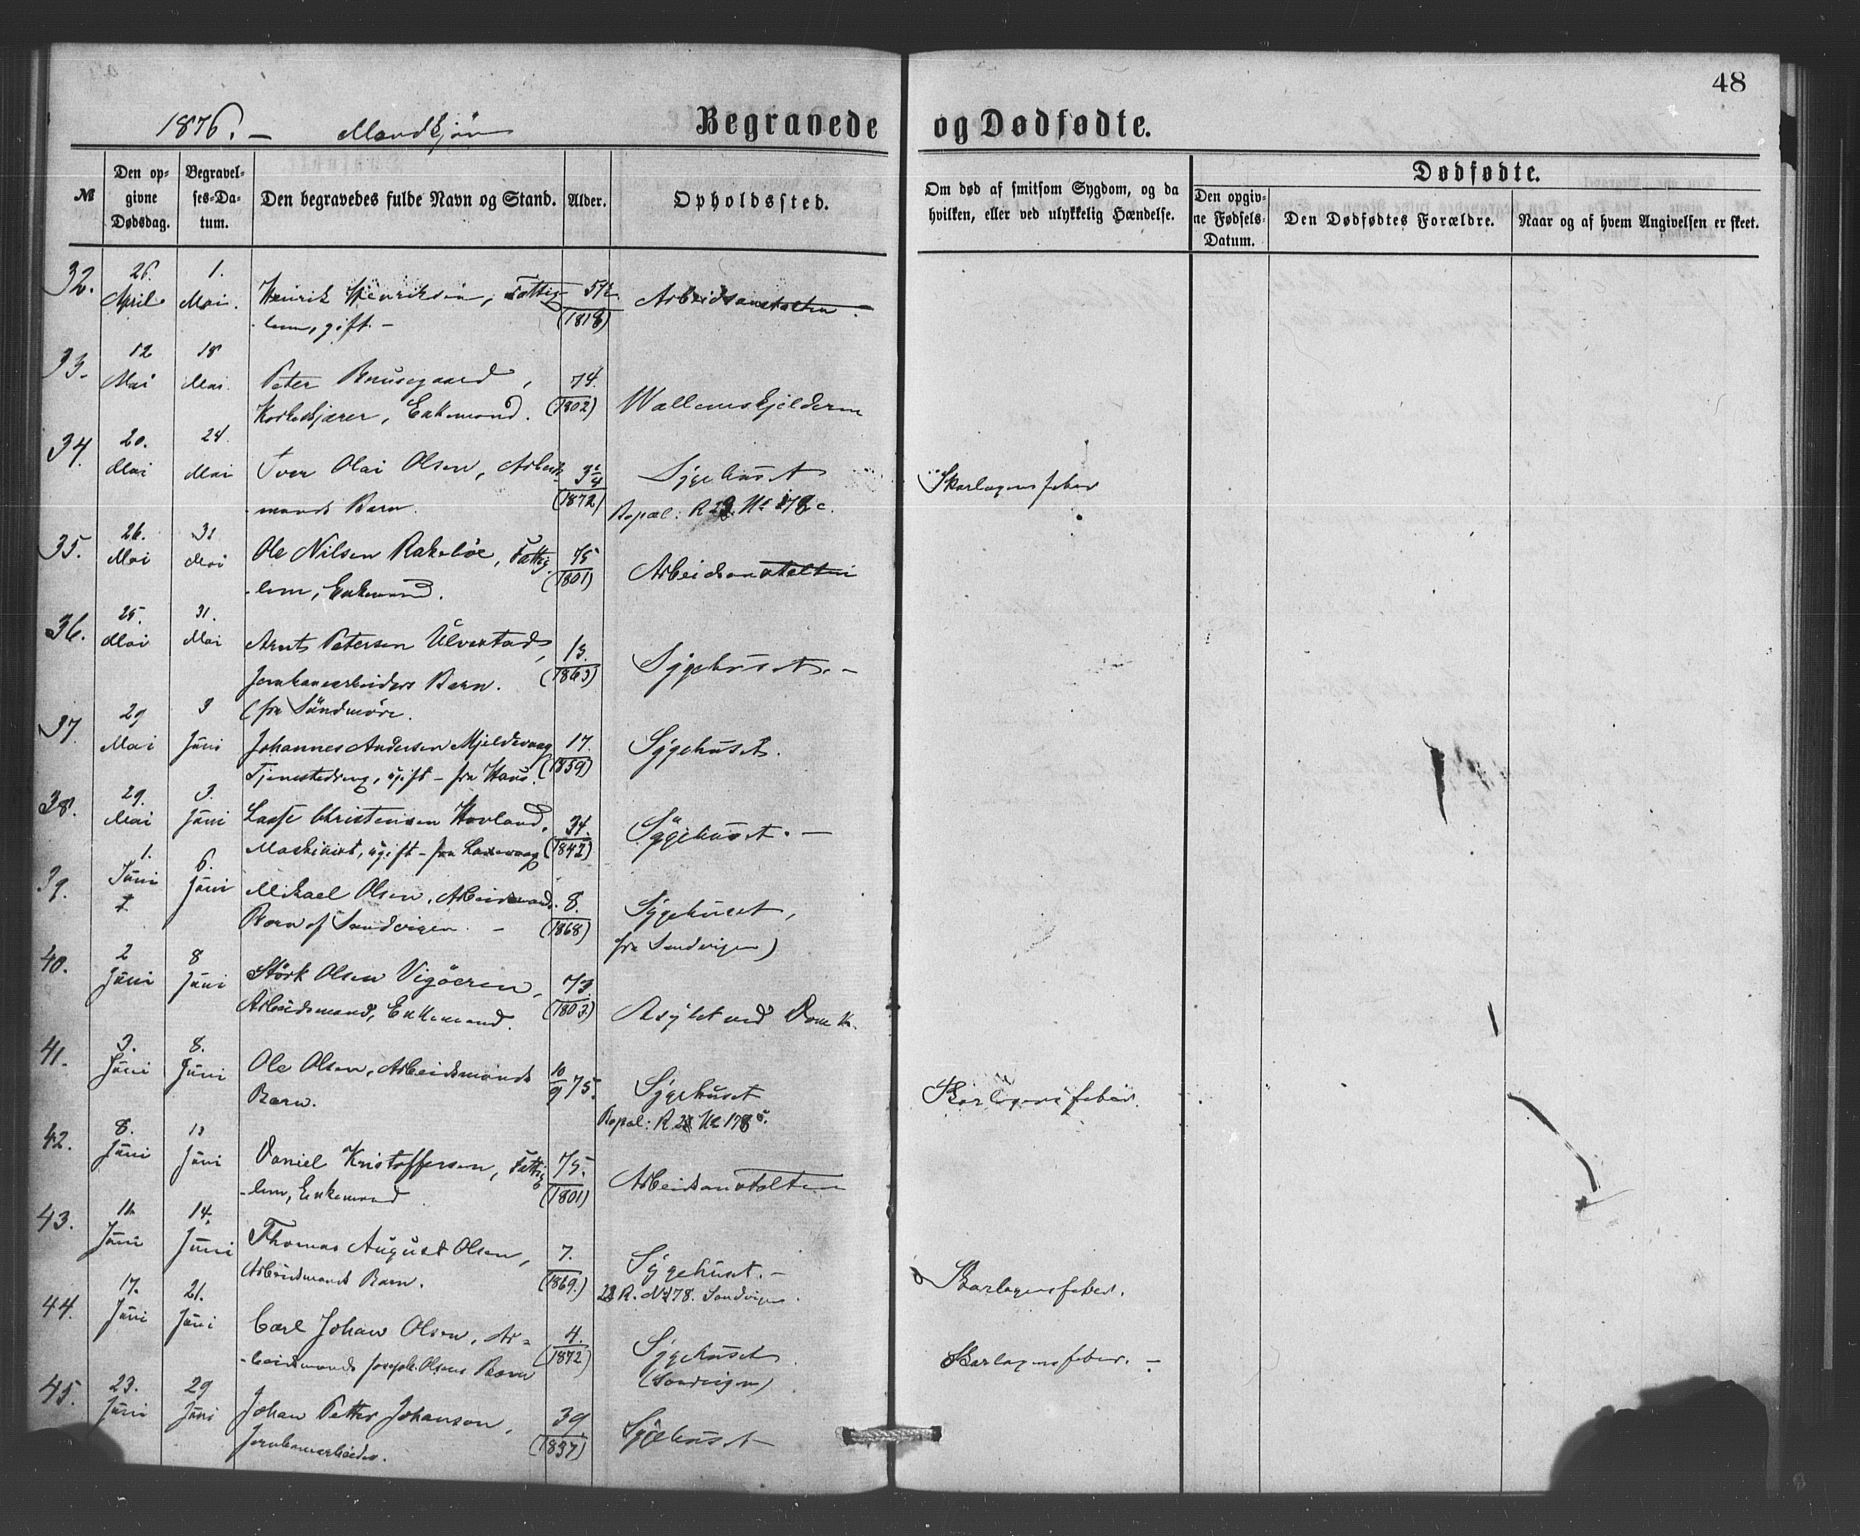 48
1876. – Mandkjøn Begravede og Dødfødte.
№
Den opgivne Dødsdag.
Begravelses-Datum.
Den begravedes fulde Navn og Stand.
Alder.
Opholdssted.
Om død af smitsom Sygdom, og da hvilken, eller ved ulykkelig Hændelse.
Dødfødte.
Den opgivne Fødsels-Datum.
Den Dødfødtes Forældre.
Naar og af hvem Angivelsen er skeet.
32. 26. April 1. Mai. Henrik Henriksen, Fattig- (1818) Arbeidsanstalten –
lem, gift –
33. 12 Mai 18 Mai. Peter Brusegaard, 74. (1802) Wallemskjelderen
Enkemand.
34. 20. Mai 24 Mai Iver Olai Olsen, Arbeids- 3 3/4 (1872) Sygehuset Skarlagensfeber
mands Barn. Bopæl: R 178 c.
35. 26. Mai 31 Mai Ole Nilsen Rakeløe, Fattig- 75 (1801) Arbeidsanstalten
lem, Enkemand.
36. 25. Mai 31. Mai Arnt Petersen Ulvestad, 13. (1863) Sygehuset. –
Jernbanearbeiders Barn.
(fra Söndmöre.
37 29 Mai 3 Juni Johannes Andersen Mjeldevaag 17. (1859) Sygehuset.
Tjenestedreng, ugift – fra Haus.
38. 29. Mai 3. Juni Lasse Christensen Hovland, 34. (1842) Sygehuset. –
Maskinist, ugift – fra Laxevaag
39. 1. Juni 6. Juni Mikael Olsen, Arbeidsmands 8. (1868) Sygehuset,
Barn af Sandvigen. – fra Sandvigen)
40. 2 Juni 8 Juni Störk Olsen Vigöeren, 73. (1803) Asylet ved Domk.
Arbeidsmand, Enkemand.
41. 3. Juni 8. Juni Ole Olsen, Arbeidsmands 10/9 75. Sygehuset Skarlagensfeber.
Barn. Bopæl: R 178
42. 8. Juni 12 Juni Daniel Kristoffersen, Fattig- 75. (1801) Arbeidsanstalten
lem, Enkemand
43. 11. Juni 14. Juni Thomas August Olsen, 7. (1869.) Sygehuset. – Skarlagensfeber.
Arbeidsmands Barn. R. № 178. Sandvigen.
44. 17. Juni 21. Juni Carl Johan Olsen, Ar- 4. (1872) Sygehuset Skarlagensfeber. –
beidsmands Joseph Olsens Barn (Sandvigen)
45. 23. Juni 29 Juni Johan Petter Johanson, 39 (1837) Sygehuset
Jernbanearbeider.